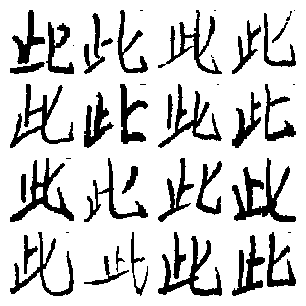 此此此此
此此此此
此此此此
此此此此